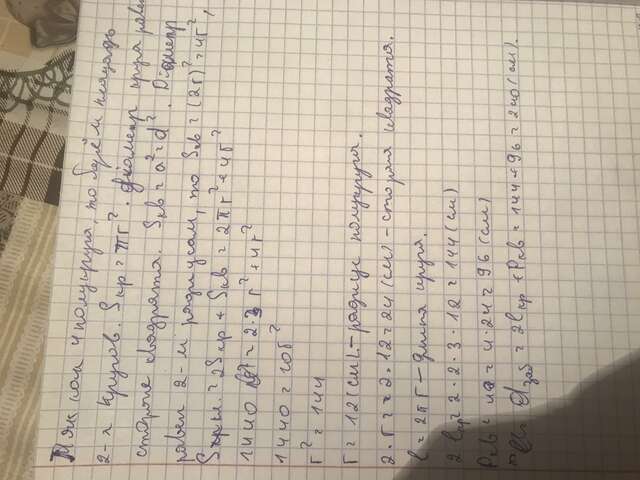 Так как 4 полукруга, то берём площадь
2-х кругов. Sкр = πr². Диаметр круга равен
стороне квадрата. Sкв = a² = d². Диаметр
равен 2-м радиусам, то Sкв = (2r)² = 4r²,
= 2Sкр + Sкв = 2πr² + 4r²
1440 = 2·3 r² + 4r²
1440 = 10r²
r² = 144
r = 12 (см) – радиус полукруга.
2·r = 2·12 = 24 (см) – сторона квадрата.
l = 2πr – длина круга.
2 lкр = 2·2·3·12 = 144 (см)
Pкв = 4a = 4·24 = 96 (см)
заб = 2lкр + Pкв = 144 + 96 = 240 (см).